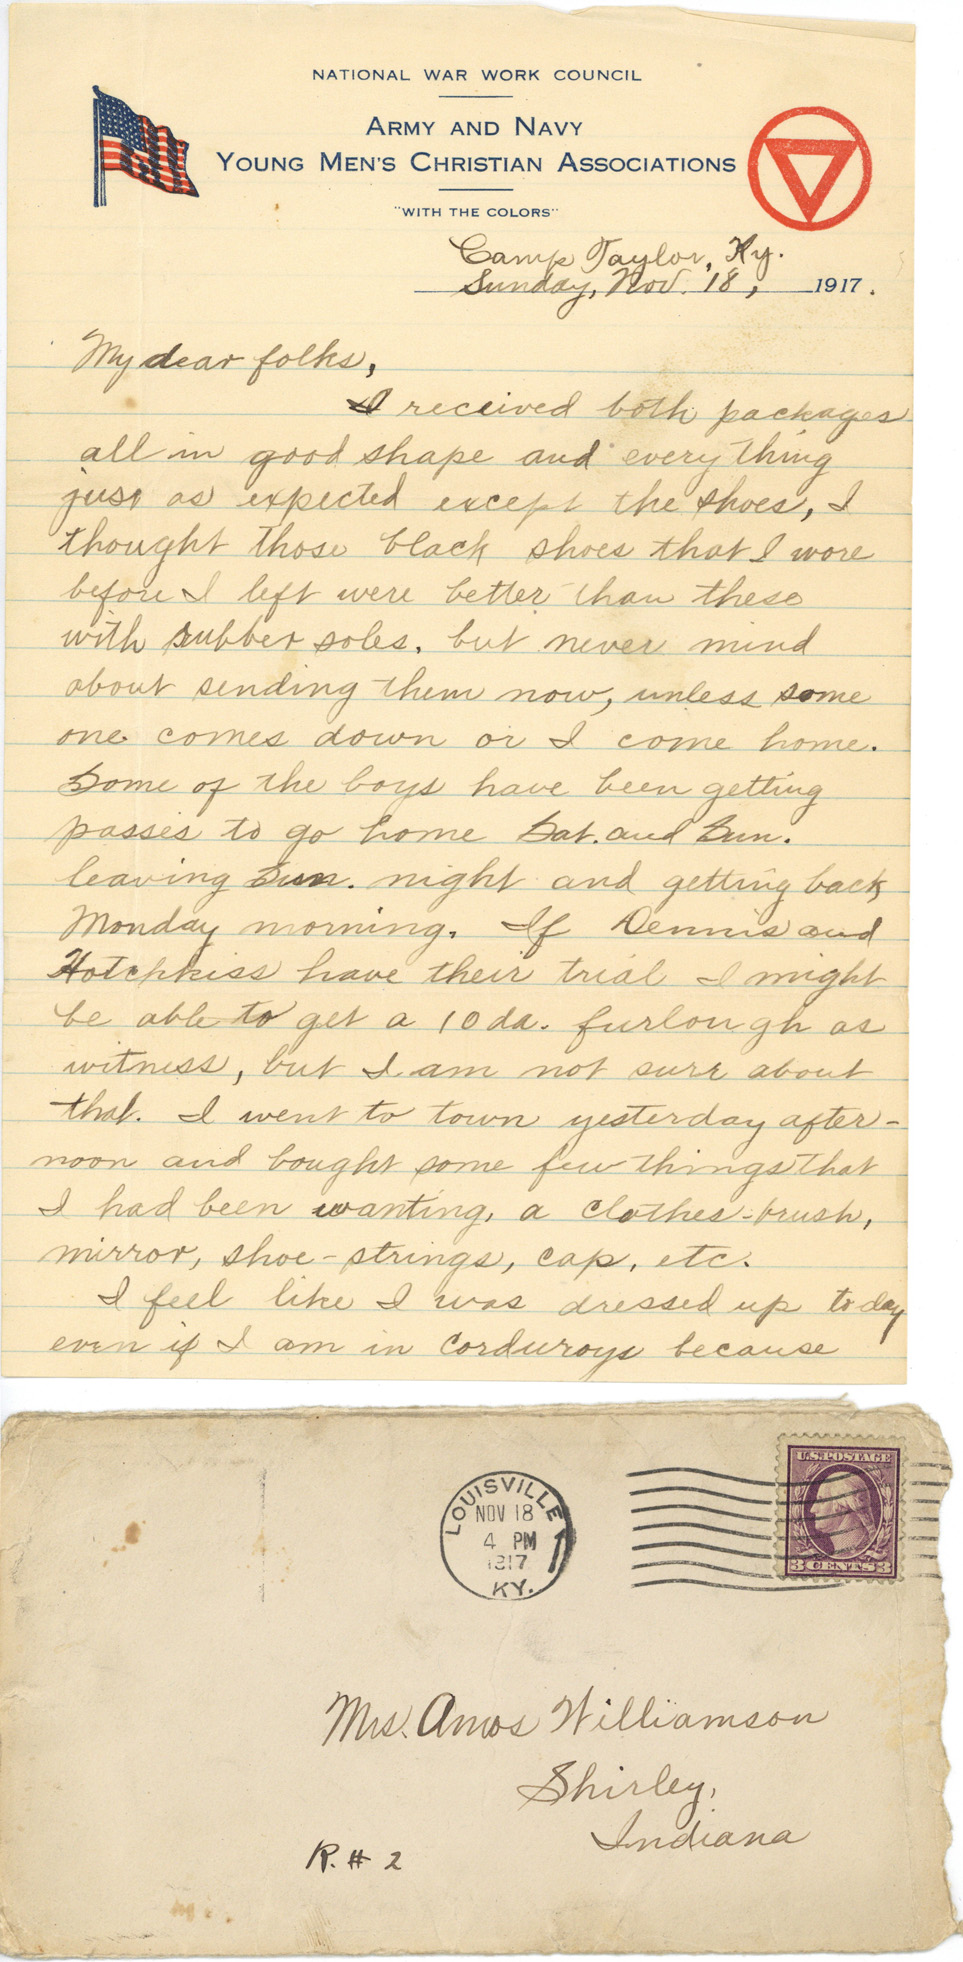 NATIONAL WAR WORK COUNCIL
ARMY AND NAVY
YOUNG MEN'S CHRISTIAN ASSOCIATIONS
"WITH THE COLORS"
Camp Taylor, Ky.
Sunday, Nov. 18, 1917.
My dear folks,
I received both packages
all in good shape and everything
just as expected except the shoes, I
thought those black shoes that I wore
before I left were better than these
with rubber soles, but never mind
about sending them now, unless some
one comes down or I come home.
Some of the boys have been getting
passes to go home Sat. and Sun.
leaving Sun. night and getting back
Monday morning. If Dennis and
Hotchkiss have their trial I might
be able to get a 10 da. furlough as
witness, but I am not sure about
that. I went to town yesterday after-
noon and bought some few things that
I had been wanting, a clothes-brush,
mirror, shoe-strings, cap, etc.
I feel like I was dressed up to day
even if I am in corduroys because
LOUISVILLE
NOV 18
4 PM
1917
KY.
U.S. POSTAGE
3 CENTS 3
Mrs. Amos Williamson
Shirley,
Indiana
R. # 2